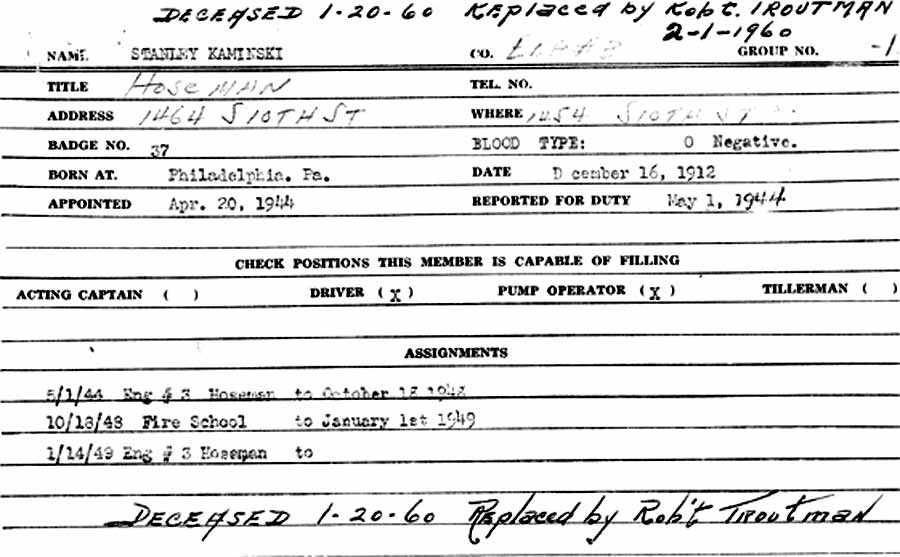 DECEASED 1-20-60 Replaced by Rob't. TROUTMAN
2-1-1960
NAME STANLEY KAMINSKI CO. GROUP NO. -1
TITLE HOSEMAN TEL. NO.
ADDRESS 1464 S 10TH ST WHERE 1454 S 10TH ST
BADGE NO. 37 BLOOD TYPE: O Negative.
BORN AT. Philadelphia. Pa. DATE D cember 16, 1912
APPOINTED Apr. 20, 1944 REPORTED FOR DUTY May 1, 1944
CHECK POSITIONS THIS MEMBER IS CAPABLE OF FILLING
ACTING CAPTAIN ( ) DRIVER (X) PUMP OPERATOR (X) TILLERMAN ( )
ASSIGNMENTS
5/1/44 Eng # 3 Hoseman to October 18 1948
10/18/48 Fire School to January 1st 1949
1/14/49 Eng # 3 Hoseman to
DECEASED 1-20-60 Replaced by Rob't TROUTMAN